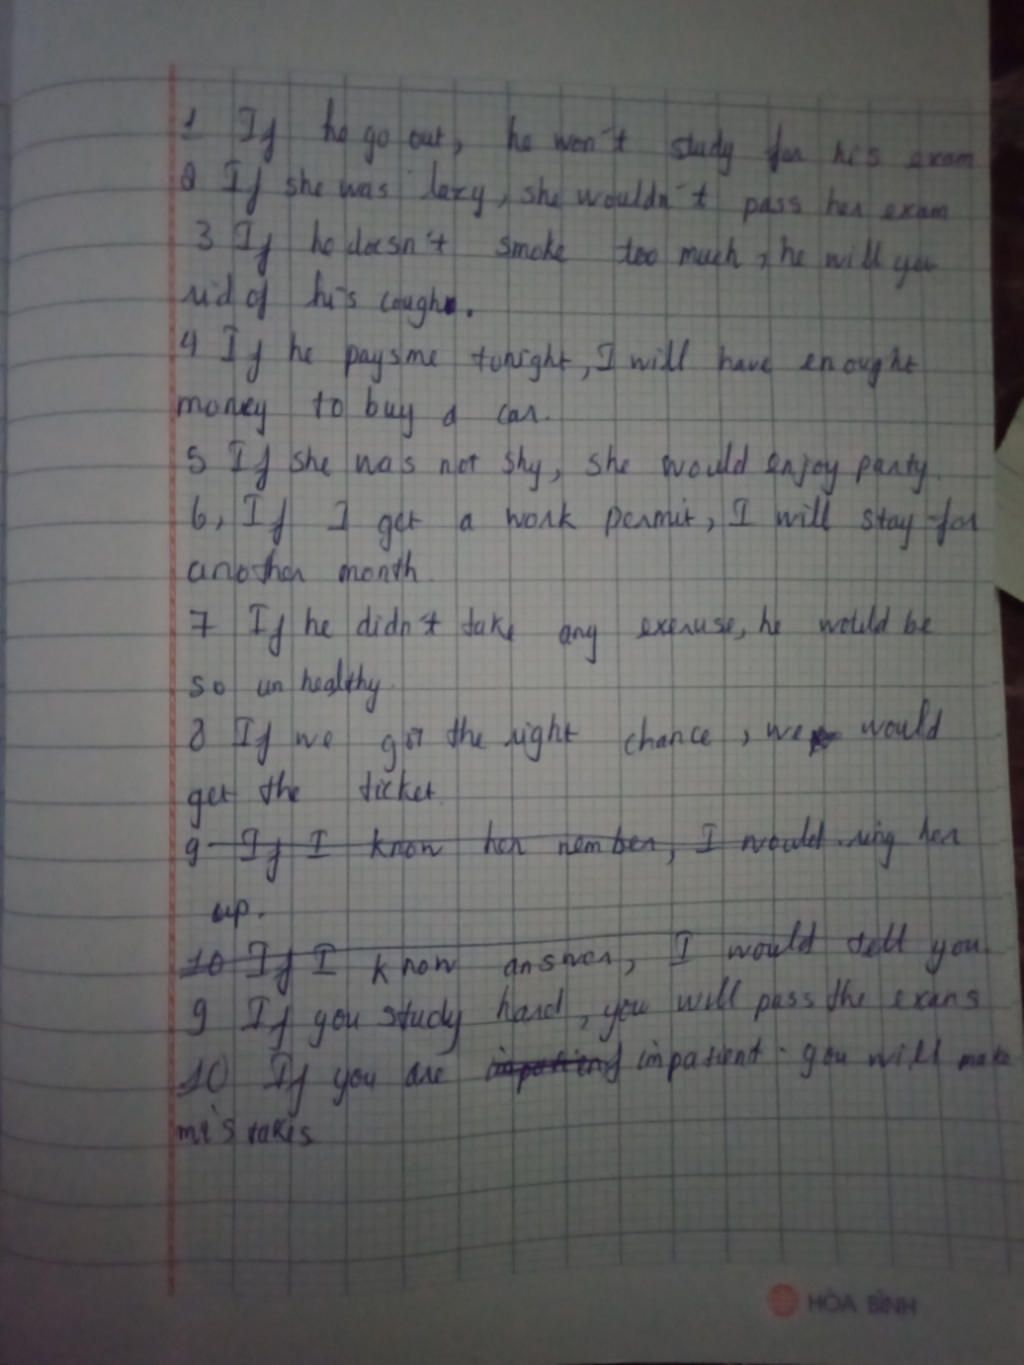 1 If he go out, he won't study for his exam
2 If she was lazy, she wouldn't pass her exam
3 If he doesn't smoke too much, he will you
rid of his cough.
4 If he pays me tonight, I will have enought
money to buy a car.
5 If she was not shy, she would enjoy party.
6, If I get a work permit, I will stay for
another month.
7 If he didn't take any exeruse, he would be
so unhealthy.
8 If we got the right chance, we would
get the ticket
9 If I know her nember, I would ring her
up.
10 If I know answer, I would tell you.
9 If you study hard, you will pass the exans
10 If you are impatient. you will make
mistakes
HÒA BÌNH